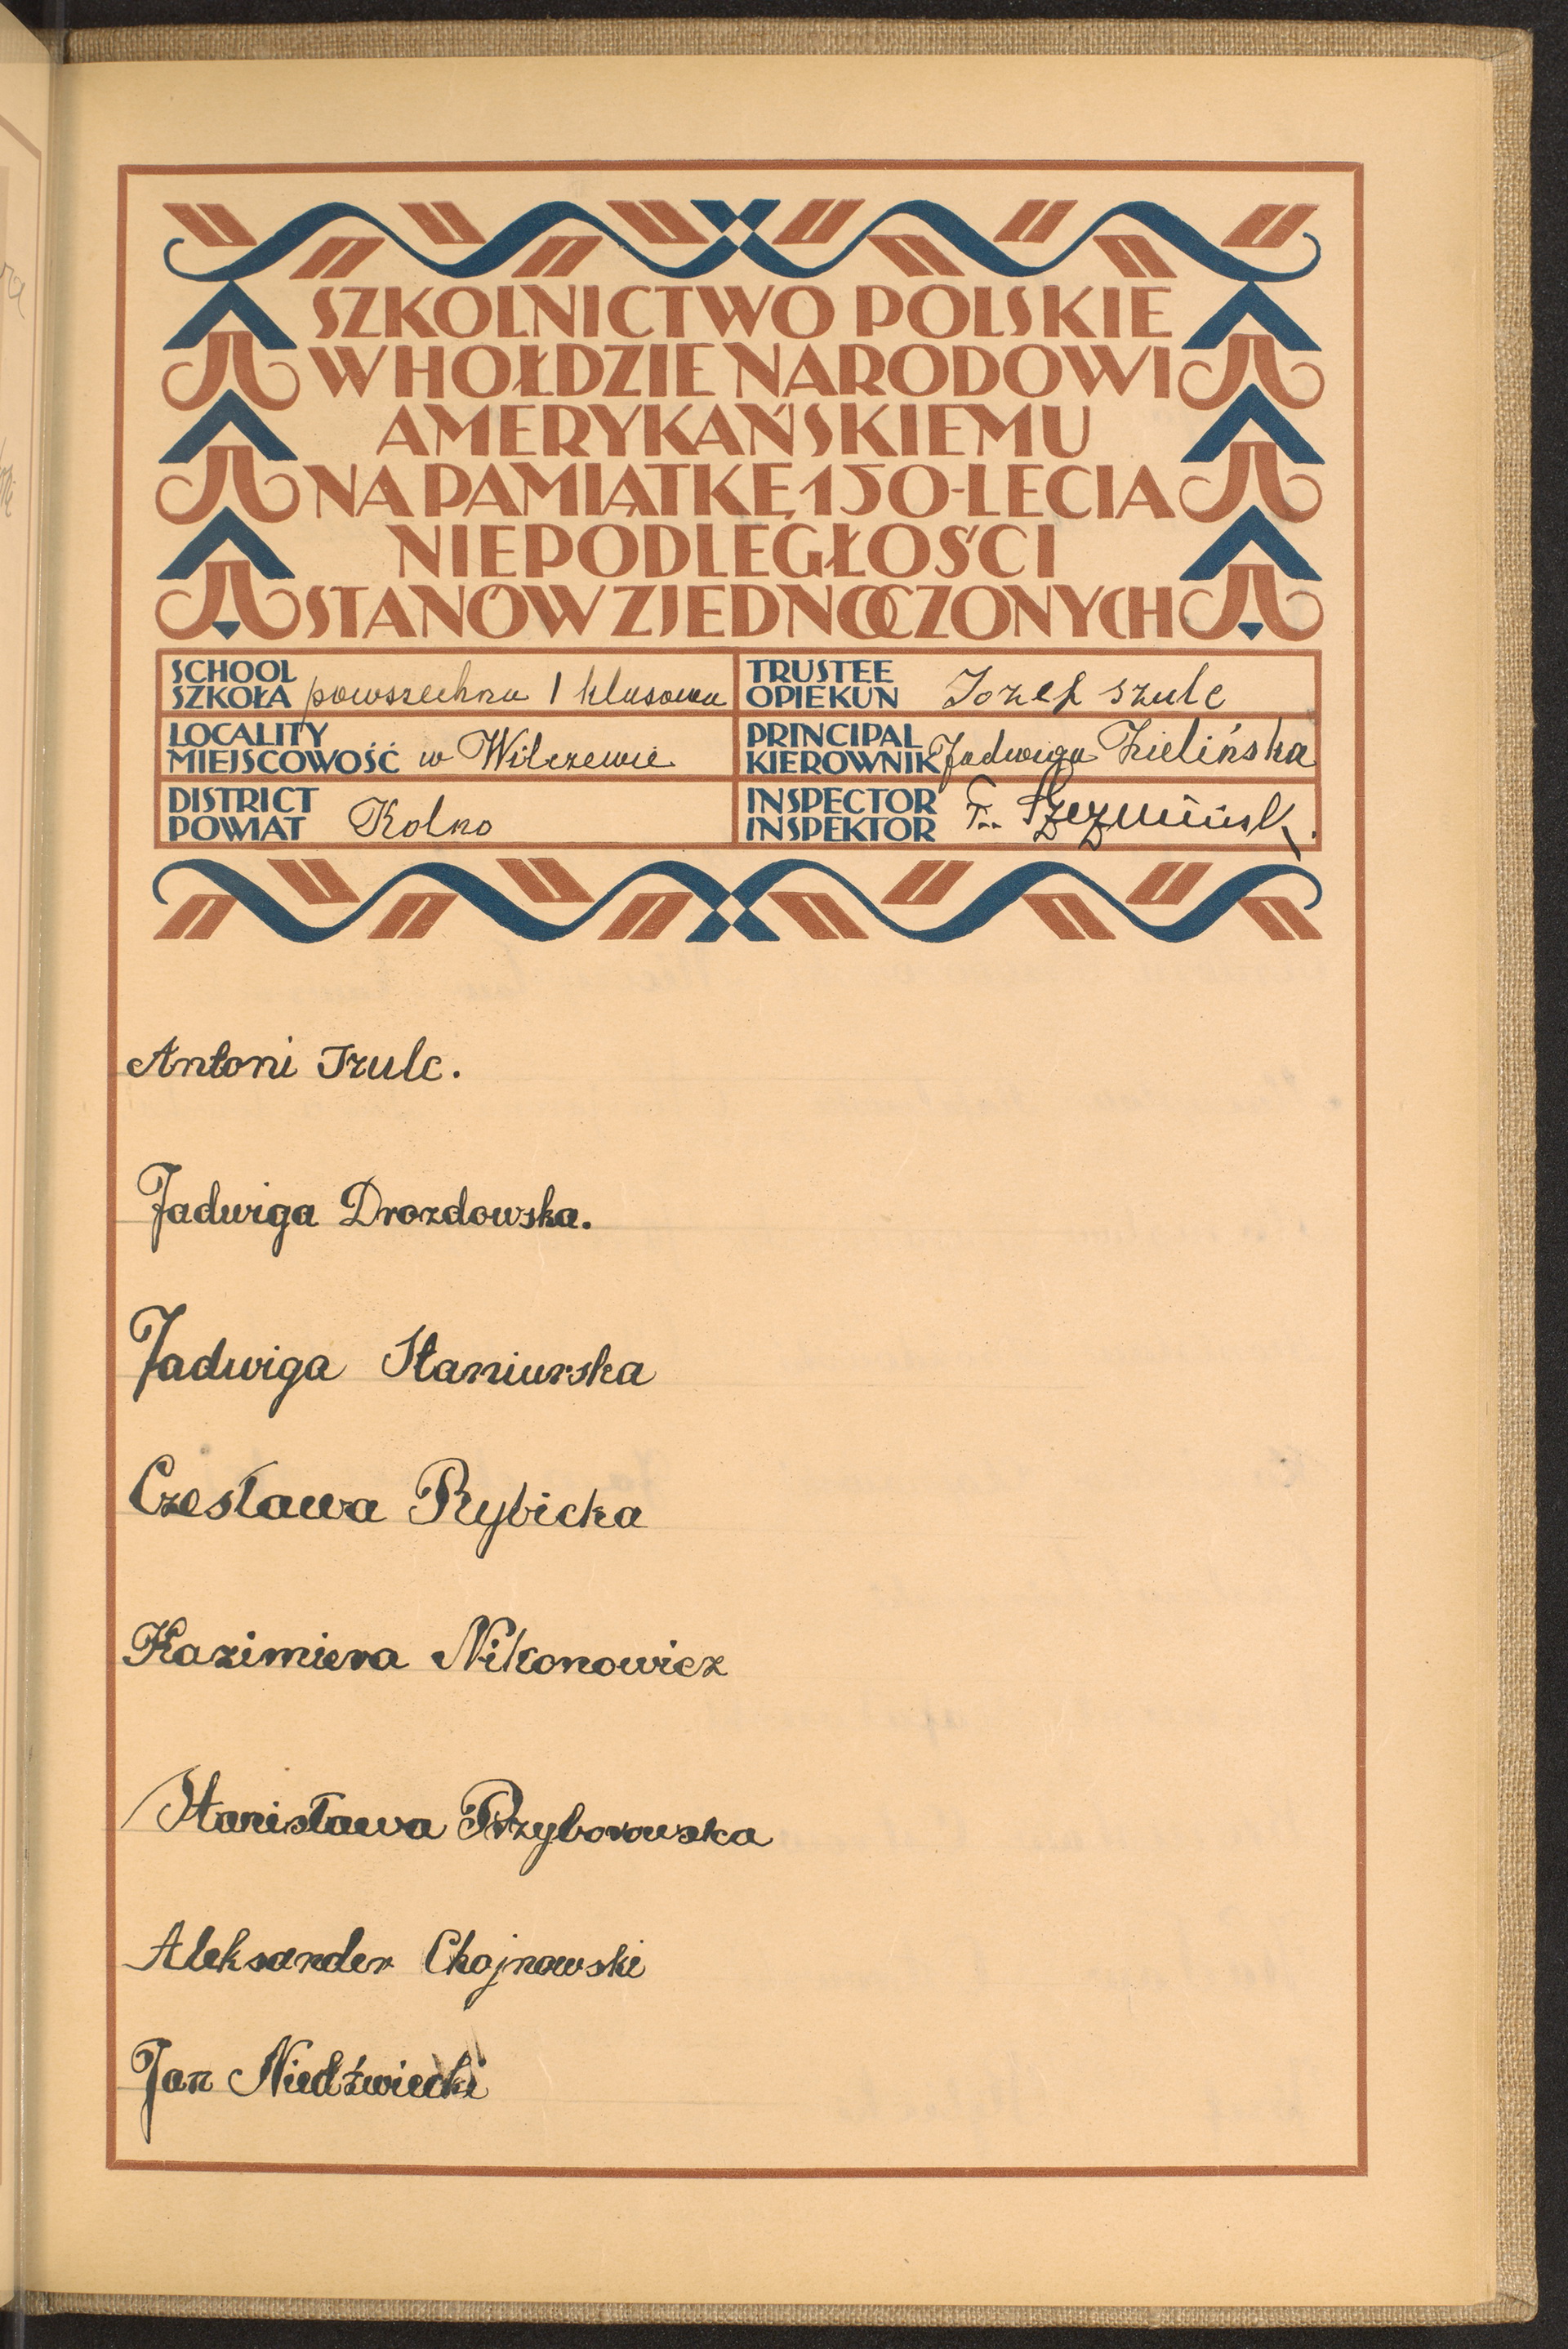 SZKOLNICTWO POLSKIE
W HOŁDZIE NARODOWI
AMERYKAŃSKIEMU
NA PAMIĄTKĘ 150-LECIA
NIEPODLEGŁOŚCI
STANÓW ZJEDNOCZONYCH
SCHOOL
SZKOŁA powszechna 1 klasowa
TRUSTEE
OPIEKUN Jozef szulc
LOCALITY
MIEJSCOWOŚĆ w Wilczewie
PRINCIPAL
KIEROWNIK Jadwiga Zielińska
DISTRICT
POWIAT Kolno
INSPECTOR
INSPEKTOR
Antoni Szulc.
Jadwiga Drozdowska.
Jadwiga Staniurska
Czesława Rybicka
Kazimiera Nikonowicz
Stanisława Przyborowska
Aleksander Chojnowski
Jan Niedźwiecki